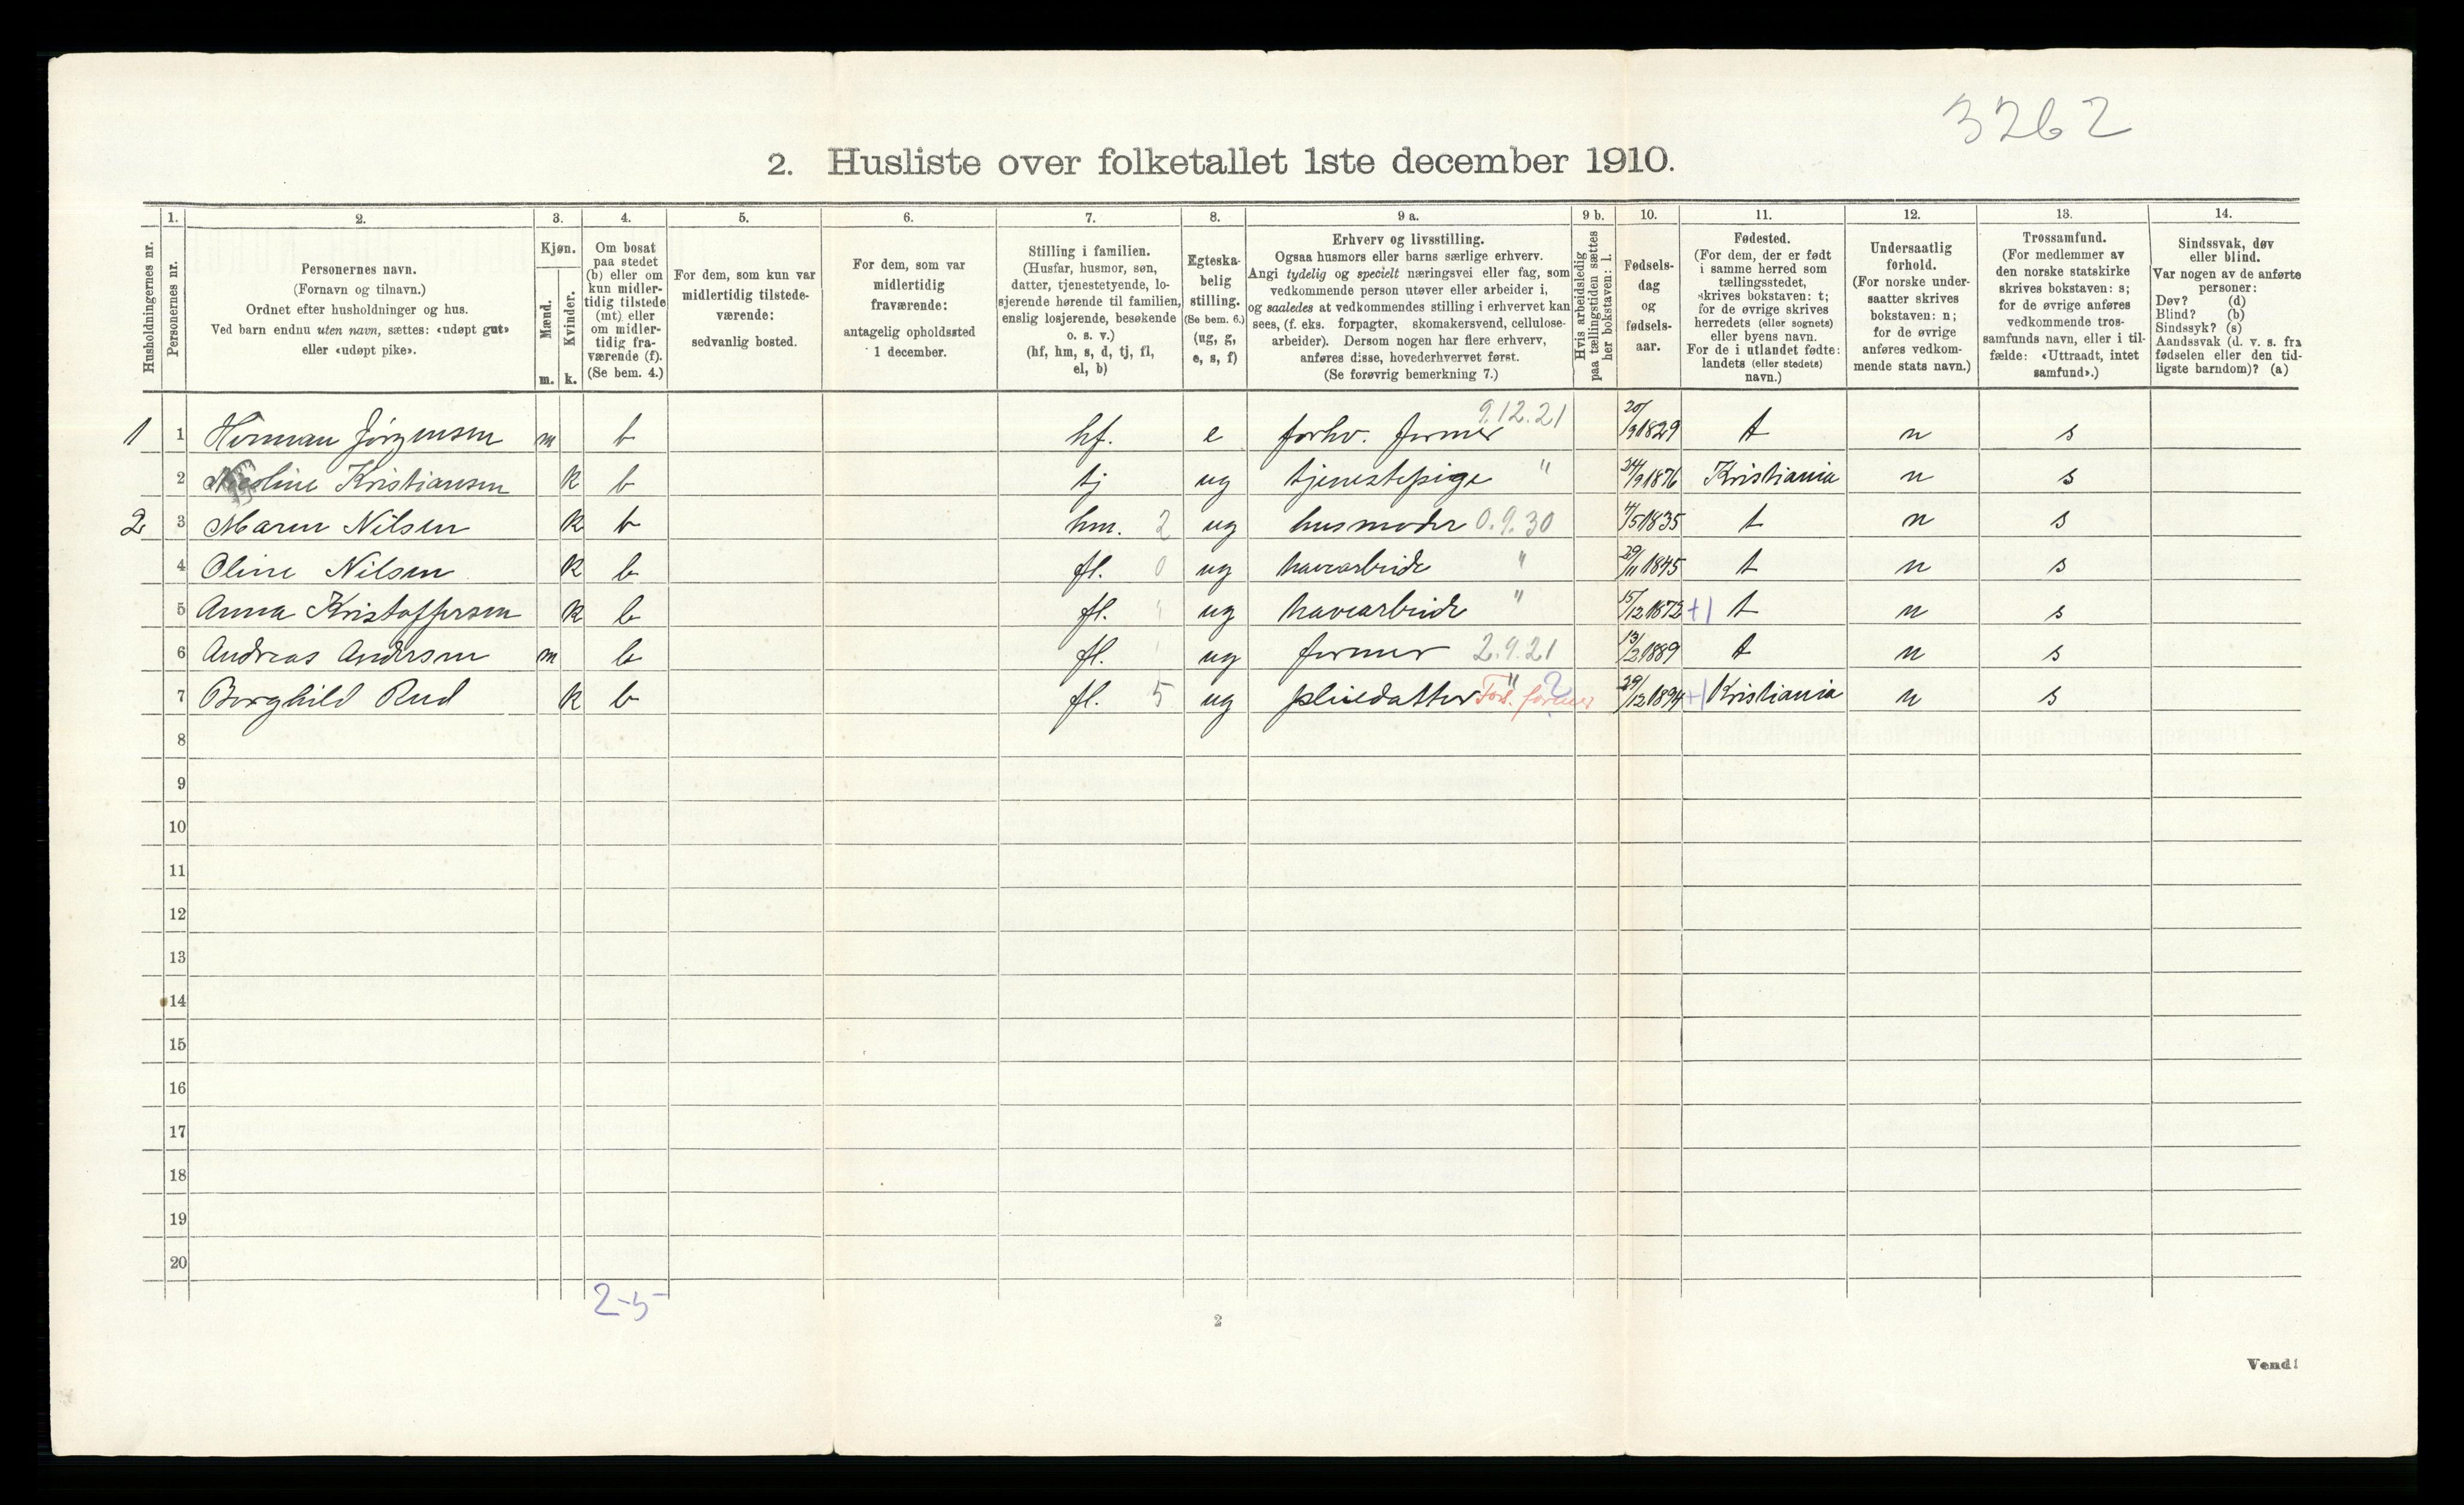 3262
2. Husliste over folketallet 1ste december 1910.
Husholdningernes nr.
1. Personernes nr.
2. Personernes navn.
(Fornavn og tilnavn.)
Ordnet efter husholdninger og hus.
Ved barn endnu uten navn, sættes: «udøpt gut»
eller «udøpt pike».
3. Kjøn.
Mænd. m.
Kvinder. k.
4. Om bosat
paa stedet
(b) eller om
kun midler-
tidig tilstede
(mt) eller
om midler-
tidig fra-
værende (f).
(Se bem. 4.)
5. For dem, som kun var
midlertidig tilstede-
værende:
sedvanlig bosted.
6. For dem, som var
midlertidig
fraværende:
antagelig opholdssted
1 december.
7. Stilling i familien.
(Husfar, husmor, søn,
datter, tjenestetyende, lo-
sjerende hørende til familien,
enslig losjerende, besøkende
o. s. v.)
(hf, hm, s, d, tj, fl,
el, b)
8. Egteska-
belig
stilling.
(Se bem. 6.)
(ug, g,
e, s, f)
9 a. Erhverv og livsstilling.
Ogsaa husmors eller barns særlige erhverv.
Angi tydelig og specielt næringsvei eller fag, som
vedkommende person utøver eller arbeider i,
og saaledes at vedkommendes stilling i erhvervet kan
sees, (f. eks. forpagter, skomakersvend, cellulose-
arbeider). Dersom nogen har flere erhverv,
anføres disse, hovederhvervet først.
(Se forøvrig bemerkning 7.)
9 b. Hvis arbeidsledig
paa tællingstiden sættes
her bokstaven: l.
10. Fødsels-
dag
og
fødsels-
aar.
11. Fødested.
(For dem, der er født
i samme herred som
tællingsstedet,
skrives bokstaven: t;
for de øvrige skrives
herredets (eller sognets)
eller byens navn.
For de i utlandet fødte:
landets (eller stedets)
navn.)
12. Undersaatlig
forhold.
(For norske under-
saatter skrives
bokstaven: n;
for de øvrige
anføres vedkom-
mende stats navn.)
13. Trossamfund.
(For medlemmer av
den norske statskirke
skrives bokstaven: s;
for de øvrige anføres
vedkommende tros-
samfunds navn, eller i til-
fælde: «Uttraadt, intet
samfund».)
14. Sindssvak, døv
eller blind.
Var nogen av de anførte
personer:
Døv? (d)
Blind? (b)
Sindssyk? (s)
Aandssvak (d. v. s. fra
fødselen eller den tid-
ligste barndom)? (a)
1 1 Herman Jørgensen m b hf. e forhv. former 9.12.21 20/9 1829 t n s
2 Nicoline Kristiansen k b tj ug tjenestepige " 24/9 1876 Kristiania n s
2 3 Maren Nilsen k b hm. 2 ug husmoder 0.9.30 4/5 1835 t n s
4 Oline Nilsen k b fl. 0 ug havearbeide " 29/11 1845 t n s
5 Anna Kristoffersen k b fl. " ug havearbeide " 15/12 1872 +1 t n s
6 Andreas Andersen m b fl. ug former 2.9.21 13/2 1889 t n s
7 Borghild Rud k b fl. 5 ug pleiedatter " Fors. former ? 29/12 1894 +1 Kristiania n s
8
9
10
11
12
13
14
15
16
17
18
19
20
2-5
2
Vend!